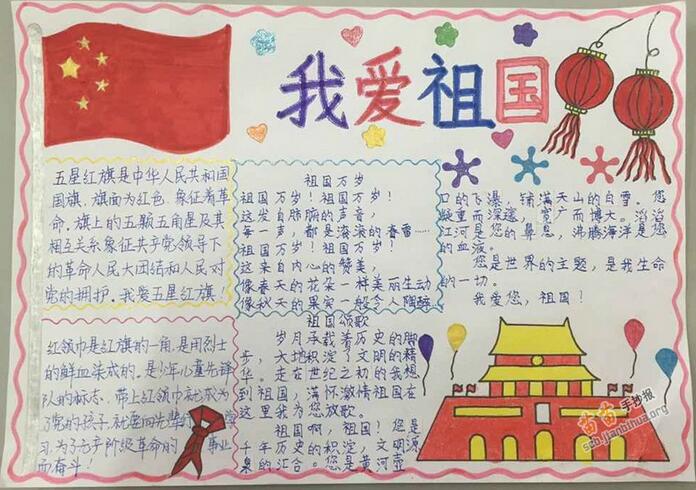 我爱祖国
五星红旗是中华人民共和国
国旗。旗面为红色,象征着革
命。旗上的五颗五角星及其
相互关系象征共产党领导下
的革命人民大团结和人民对
党的拥护。我爱五星红旗!
红领巾是红旗的一角,是用烈士
的鲜血染成的。是少年儿童先锋
队的标志。带上红领巾就成为
了党的孩子,就要向先辈的学
习,为了无产阶级革命的事业
而奋斗!
祖国万岁
祖国万岁!祖国万岁!
这发自肺腑的声音,
每一声,都是滚滚的春雷……
祖国万岁!祖国万岁!
这来自内心的赞美,
像春天的花朵一样美丽生动
像秋天的果实一般令人陶醉
祖国颂歌
岁月承载着历史的脚
步,大地积淀了文明的精
华。走在世纪之初的我想
到祖国,满怀激情祖国在
这里我为您放歌。
祖国啊,祖国!您是
千年历史的积淀,文明源
泉的汇合。您是黄河壶
口的飞瀑,铺满天山的白雪。您
凝重而深邃,宽广而博大。滔滔
江河是您的鼻息,沸腾海洋是您
的血液。
您是世界的主题,是我生命
的一切。
我爱您,祖国!
苗苗手抄报
scb.jianbihua.org